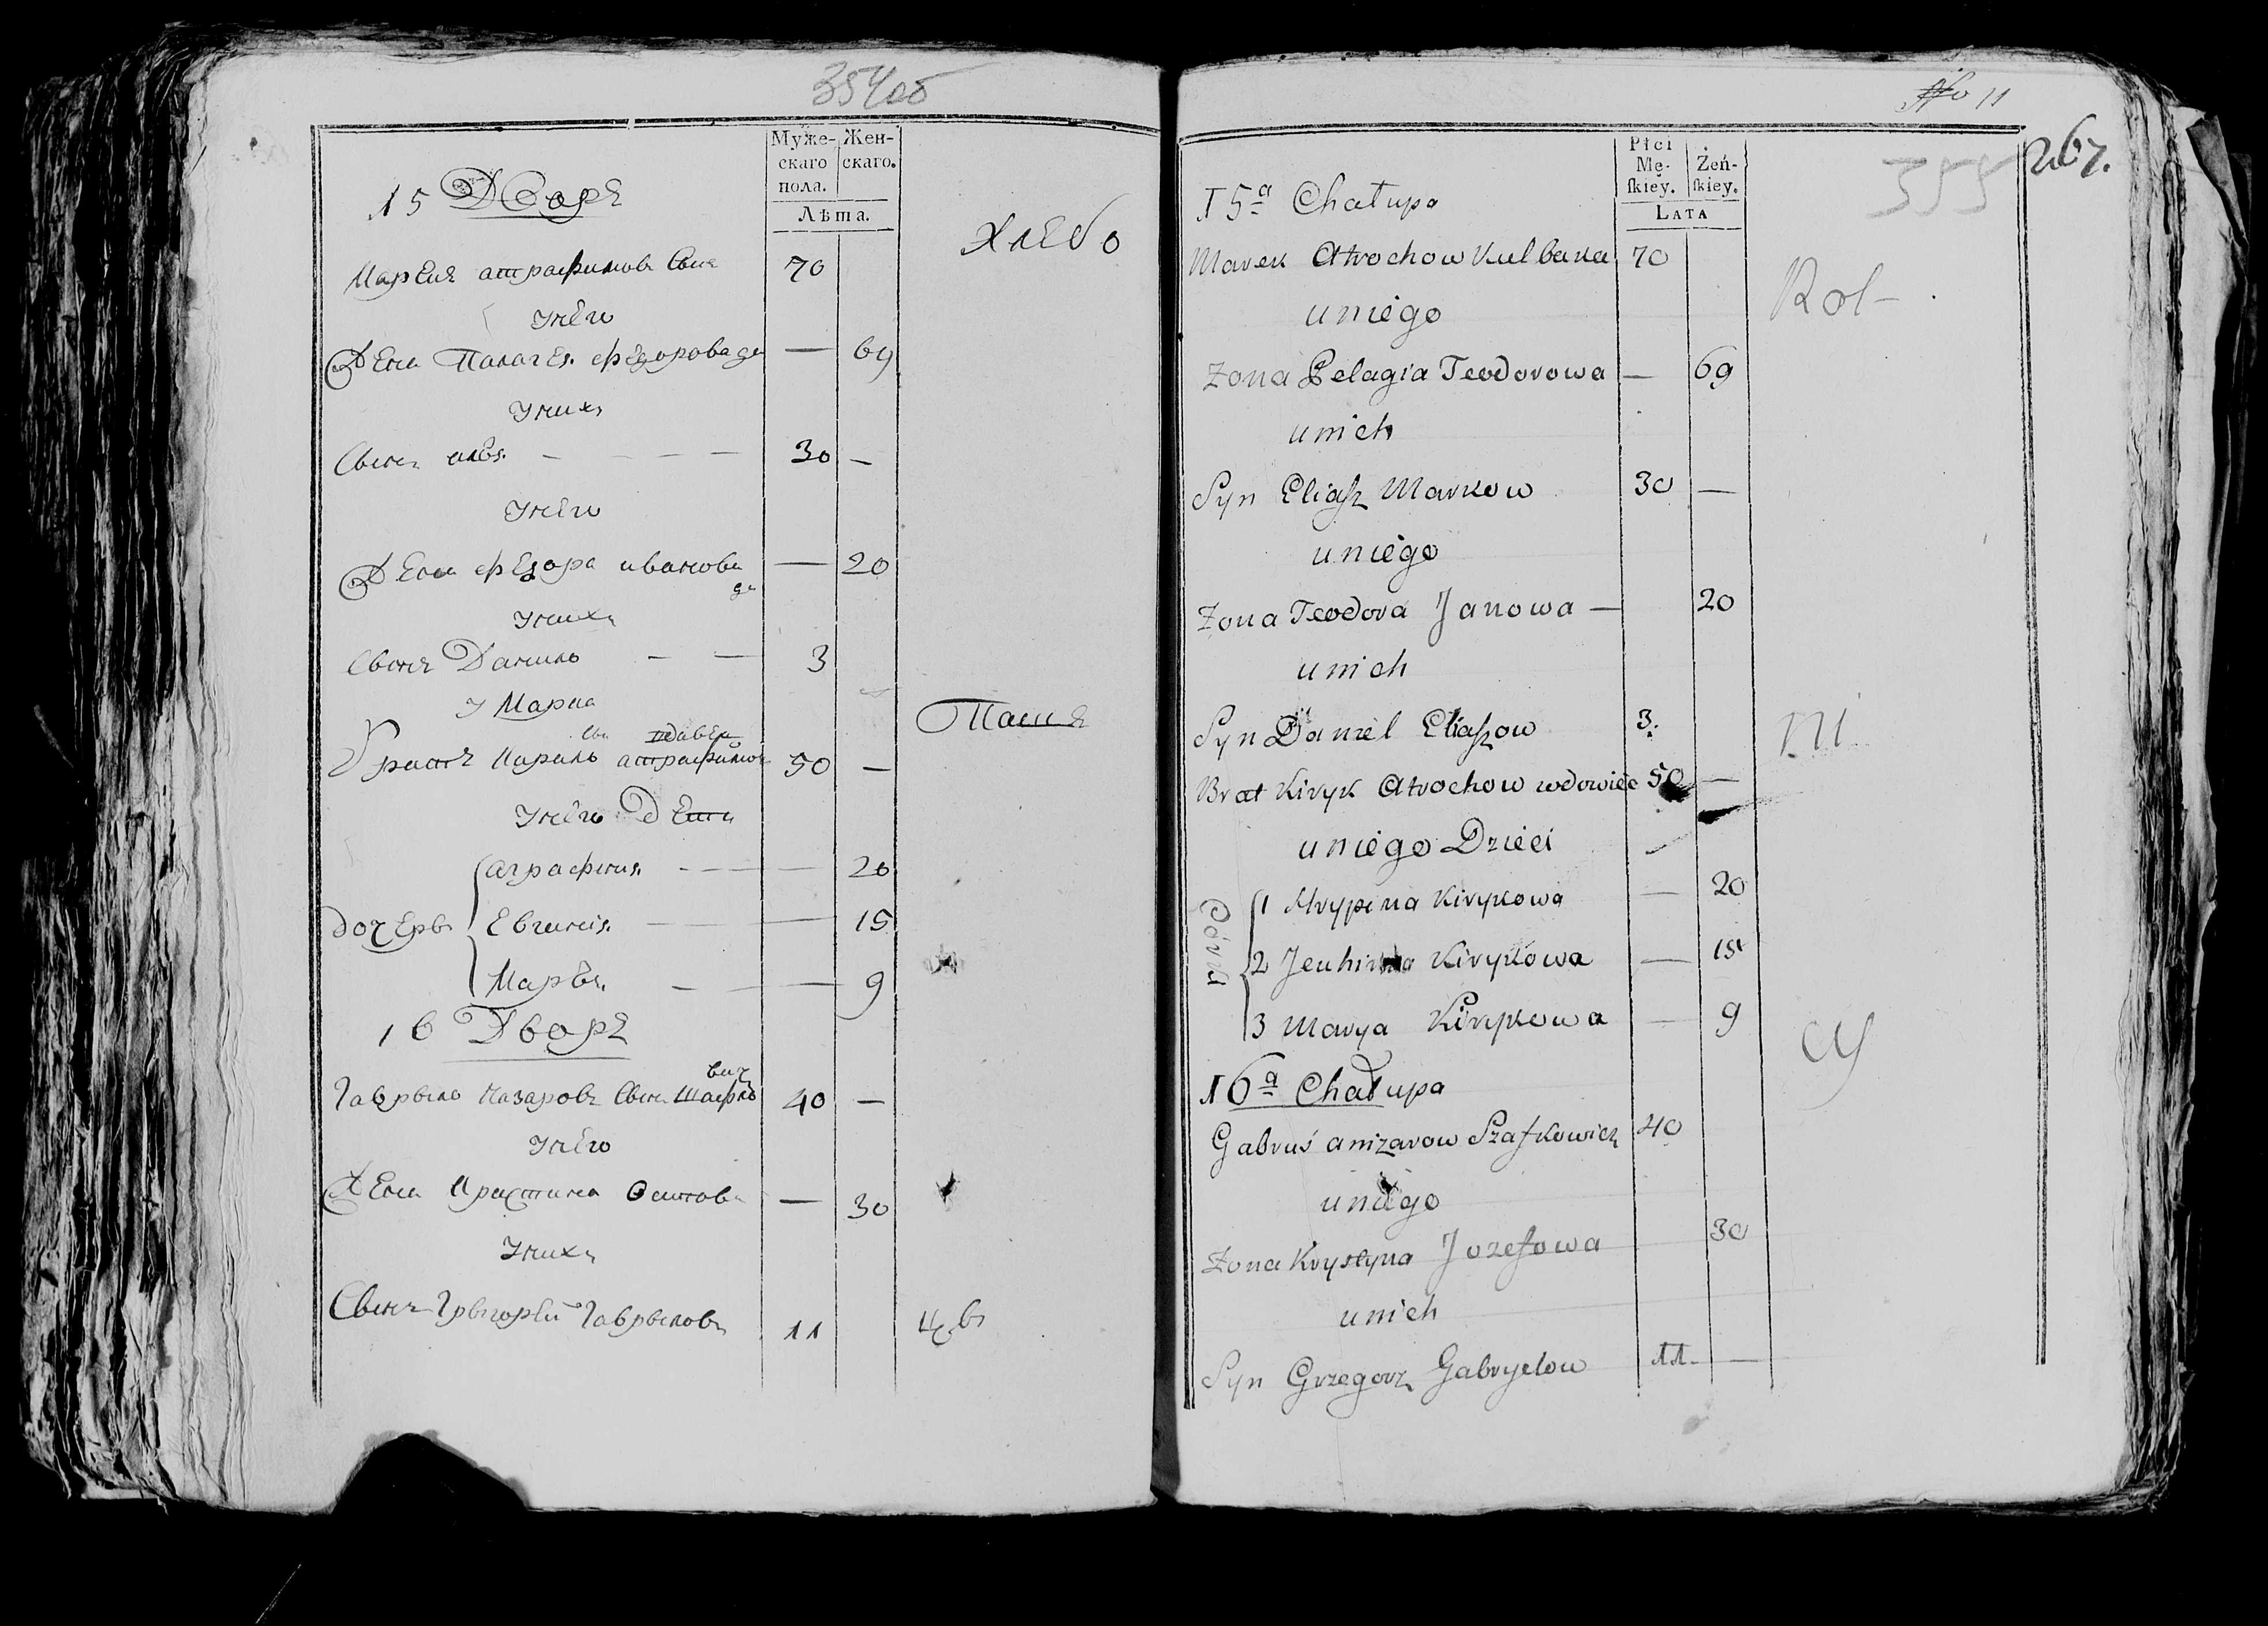 354об
Муже-
скаго
пола.
Жен-
скаго.
Лѣта.
15 Дворъ
хлебо
70
У него
Жена Палагея Федорова до
— 69
У них
Сынъ илья — — — —
30 —
У него
Жена Федора иванова
до
— 20
У нихъ
Сынъ Данило — —
3
У Марка
Братъ Кирило
50 —
У него Дети
Аграфния — — — — 20
дочеръ
Евгиния — — — — 15
Марья — — — 9
16 Дворъ
вич
Гаврыло Назаровъ Сынъ Шафко
40 —
У него
Жена Кристина Осипова
— 30
У нихъ
Сынъ Грыгорей Гаврыловъ
11
цы
No 11
267.
355
Płci
Mę-
skiey.
Żeń-
skiey.
LATA
15a Chałupa
Marek Atrochow Kulbaka 70
Rol-
u niego
Zona Pelagia Teodorowa — 69
u nich
Syn Eliasz Markow 30 —
u niego
Zona Teodora Janowa — 20
u nich
Syn Daniel Eliaszow 3.
ni
Brat Kiryk Atrochow wdowiec 50 —
u niego Dzieci
Córki
1 Hrypina Kirykowa — 20
2 Jeuhinia Kirykowa — 15
3 Marya Kirykowa — 9
cy
16a Chałupa
Gabruś anizarow Szafkowicz 40
u niego
Zona Krystyna Jozefowa 30
u nich
Syn Grzegorz Gabryelow 11 —